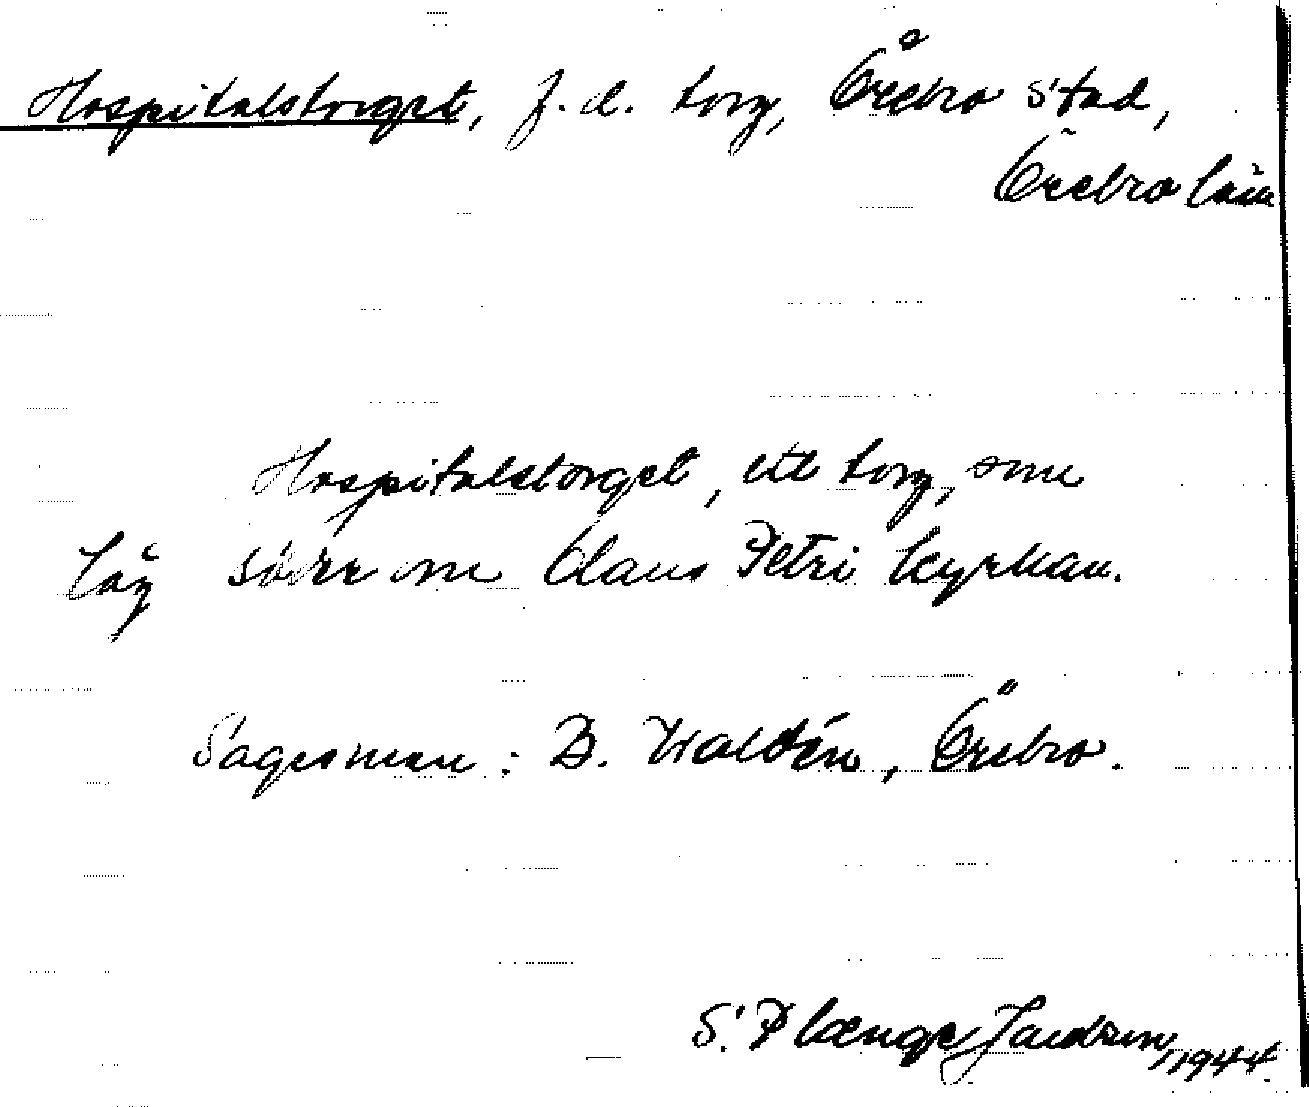 Hospitalstorget, f.d. torg, Örebro stad,
Örebro län
Hospitalstorget, ett torg, som
låg söder om Olaus Petri kyrkan.
Sagesman: B. Waldén, Örebro.
S. Plænge Jacobson, 1944.